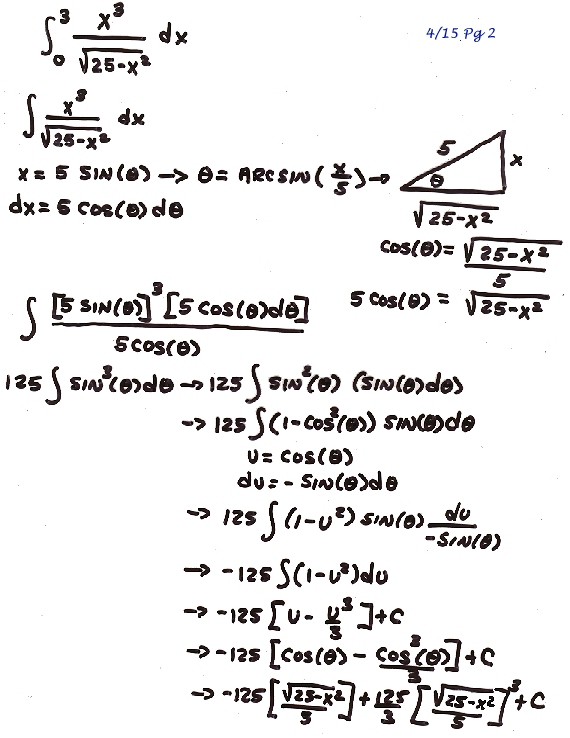 ∫₀³ x³/√(25-x²) dx
4/15 Pg 2
∫ x³/√(25-x²) dx
x = 5 SIN(θ) → θ = ARCSIN(x/5) →
5
x
θ
√(25-x²)
dx = 5 cos(θ) dθ
cos(θ) = √(25-x²)/5
5 cos(θ) = √(25-x²)
∫ [5 SIN(θ)]³ [5 cos(θ)dθ] / 5cos(θ)
125 ∫ SIN³(θ)dθ → 125 ∫ SIN²(θ) (SIN(θ)dθ)
→ 125 ∫ (1-cos²(θ)) SIN(θ)dθ
u = cos(θ)
du = - SIN(θ)dθ
→ 125 ∫ (1-u²) SIN(θ) du/-SIN(θ)
→ -125 ∫(1-u²)du
→ -125 [u - u³/3] + C
→ -125 [cos(θ) - cos³(θ)/3] + C
→ -125 [√(25-x²)/5] + 125/3 [√(25-x²)/5]³ + C